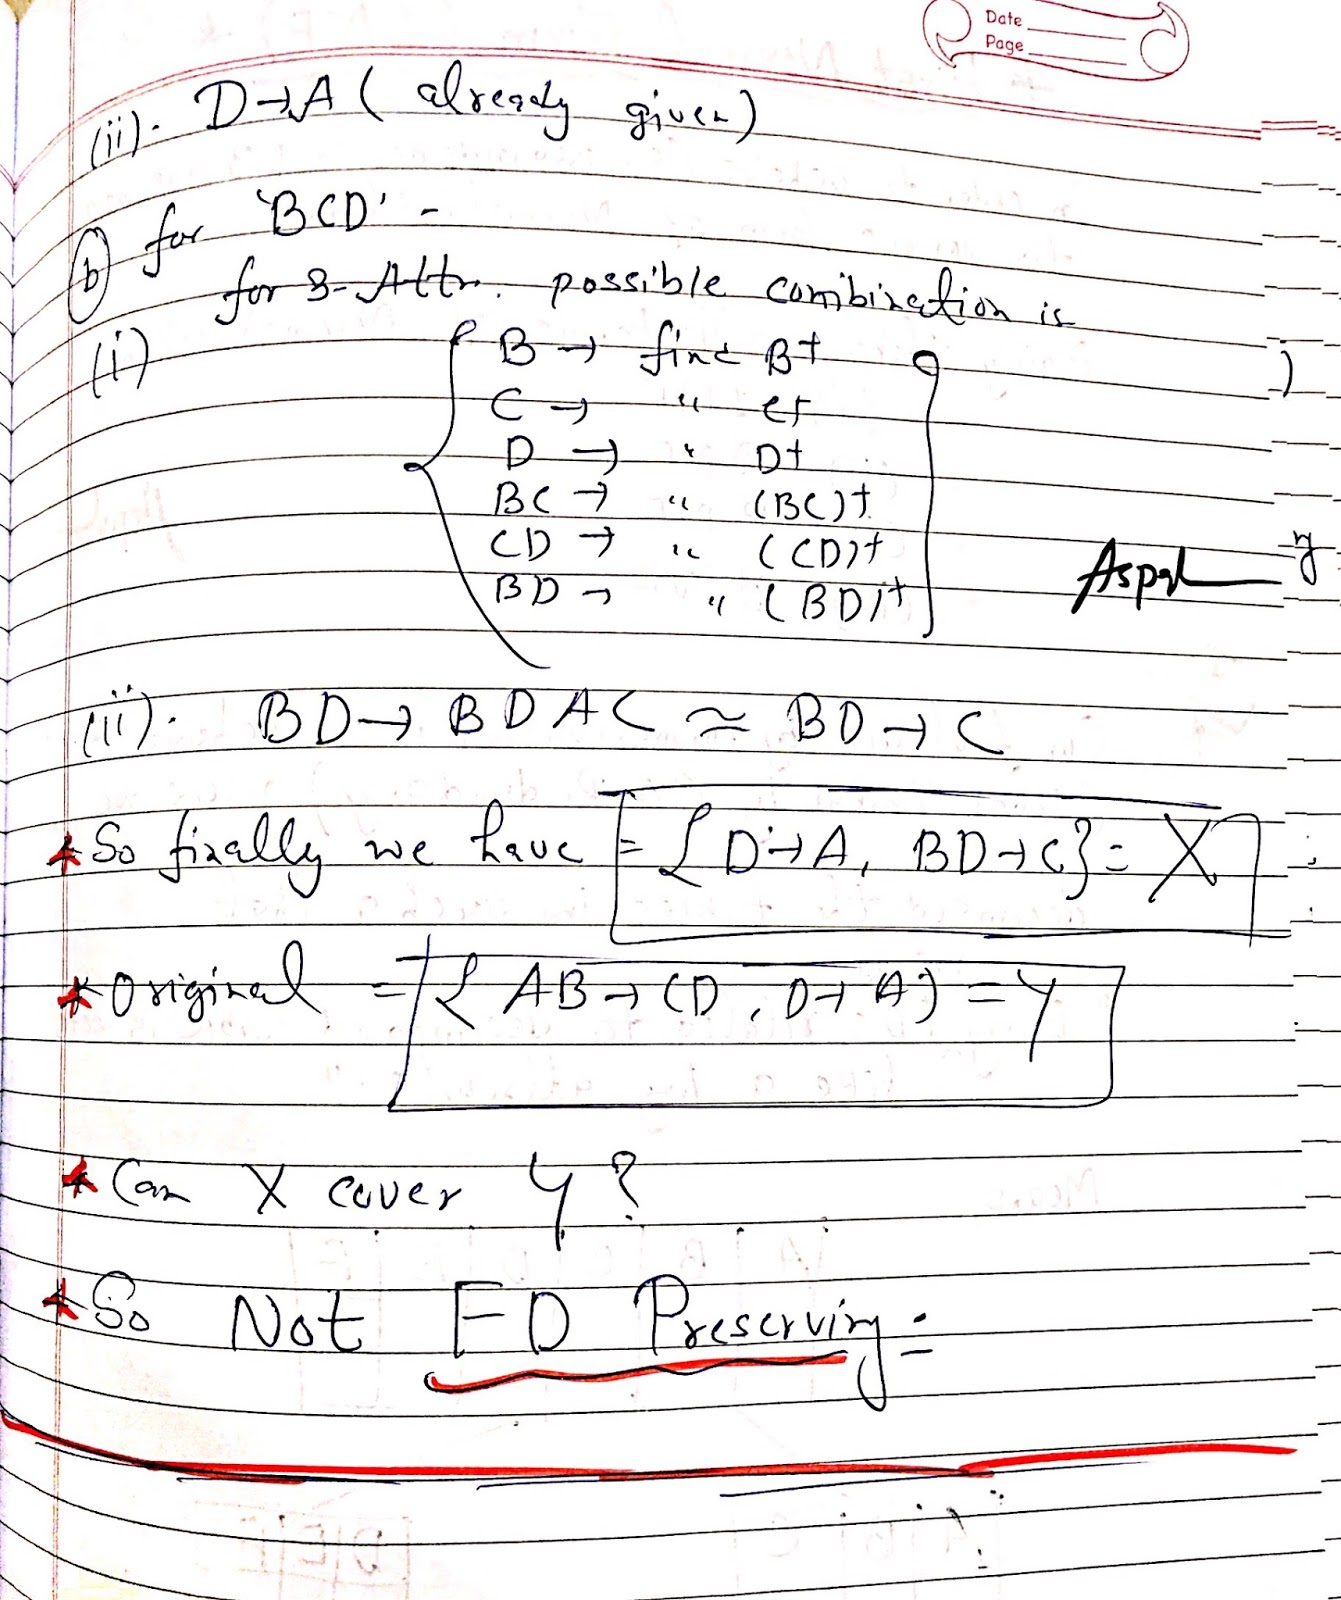 Date
Page
(ii). D→A ( already given)
(b) for 'BCD' -
for 3-Attr. possible combination is
(i)
B → find B+
C → " C+
D → " D+
BC → " (BC)+
CD → " (CD)+
BD → " (BD)+
(ii). BD→ BDAC ≃ BD→C
* So finally we have = { D→A, BD→C} = X
* Original = { AB→CD, D→A} = Y
* Can X cover Y?
* So Not FD Preserving